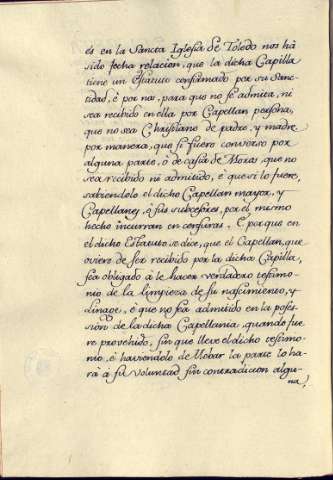 és en la Sancta Iglesia de Toledo nos há
sido fecha relacion, que la dicha Capilla
tiene un Estatuto confirmado por su Sanc-
tidad, è por nos, para que no se admita, ni
sea recibido en ella por Capellan persona,
que no sea Christiano de padre, y madre
por manera, que si fuere converso por
alguna parte, ó de casta de Moros que no
sea recibido ni admitido, è que si lo fuere,
sabiendolo el dicho Capellan mayor, y
Capellanes, ò sus subcesores, por el mismo
hecho incurran en censuras. E porque en
el dicho Estatuto se dice, que el Capellan, que
oviere de ser recibido por la dicha Capilla,
sea obligado à le hacer verdadero testimo-
nio de la limpieza de su nascimiento, y
Linage, è que no sea admitido en la poses-
sion de la dicha Capellania, quando fue-
re provehido, sin que lleve el dicho testimo-
nio, è haviendolo de probar la parte lo ha-
rá à su voluntad sin contradicion algu-
na,